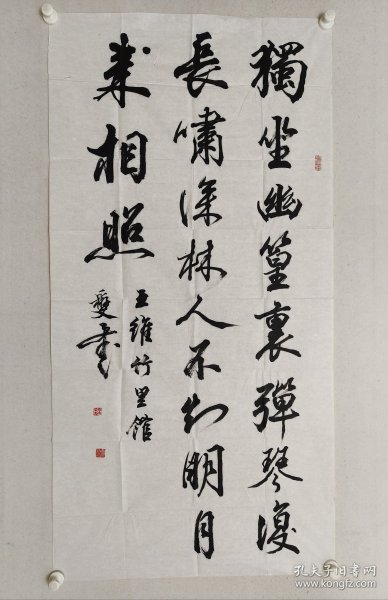 獨坐幽篁裏彈琴復
長嘯深林人不知明月
来相照
王維竹里館
雙書
孔夫子旧书网
www.kongfz.com